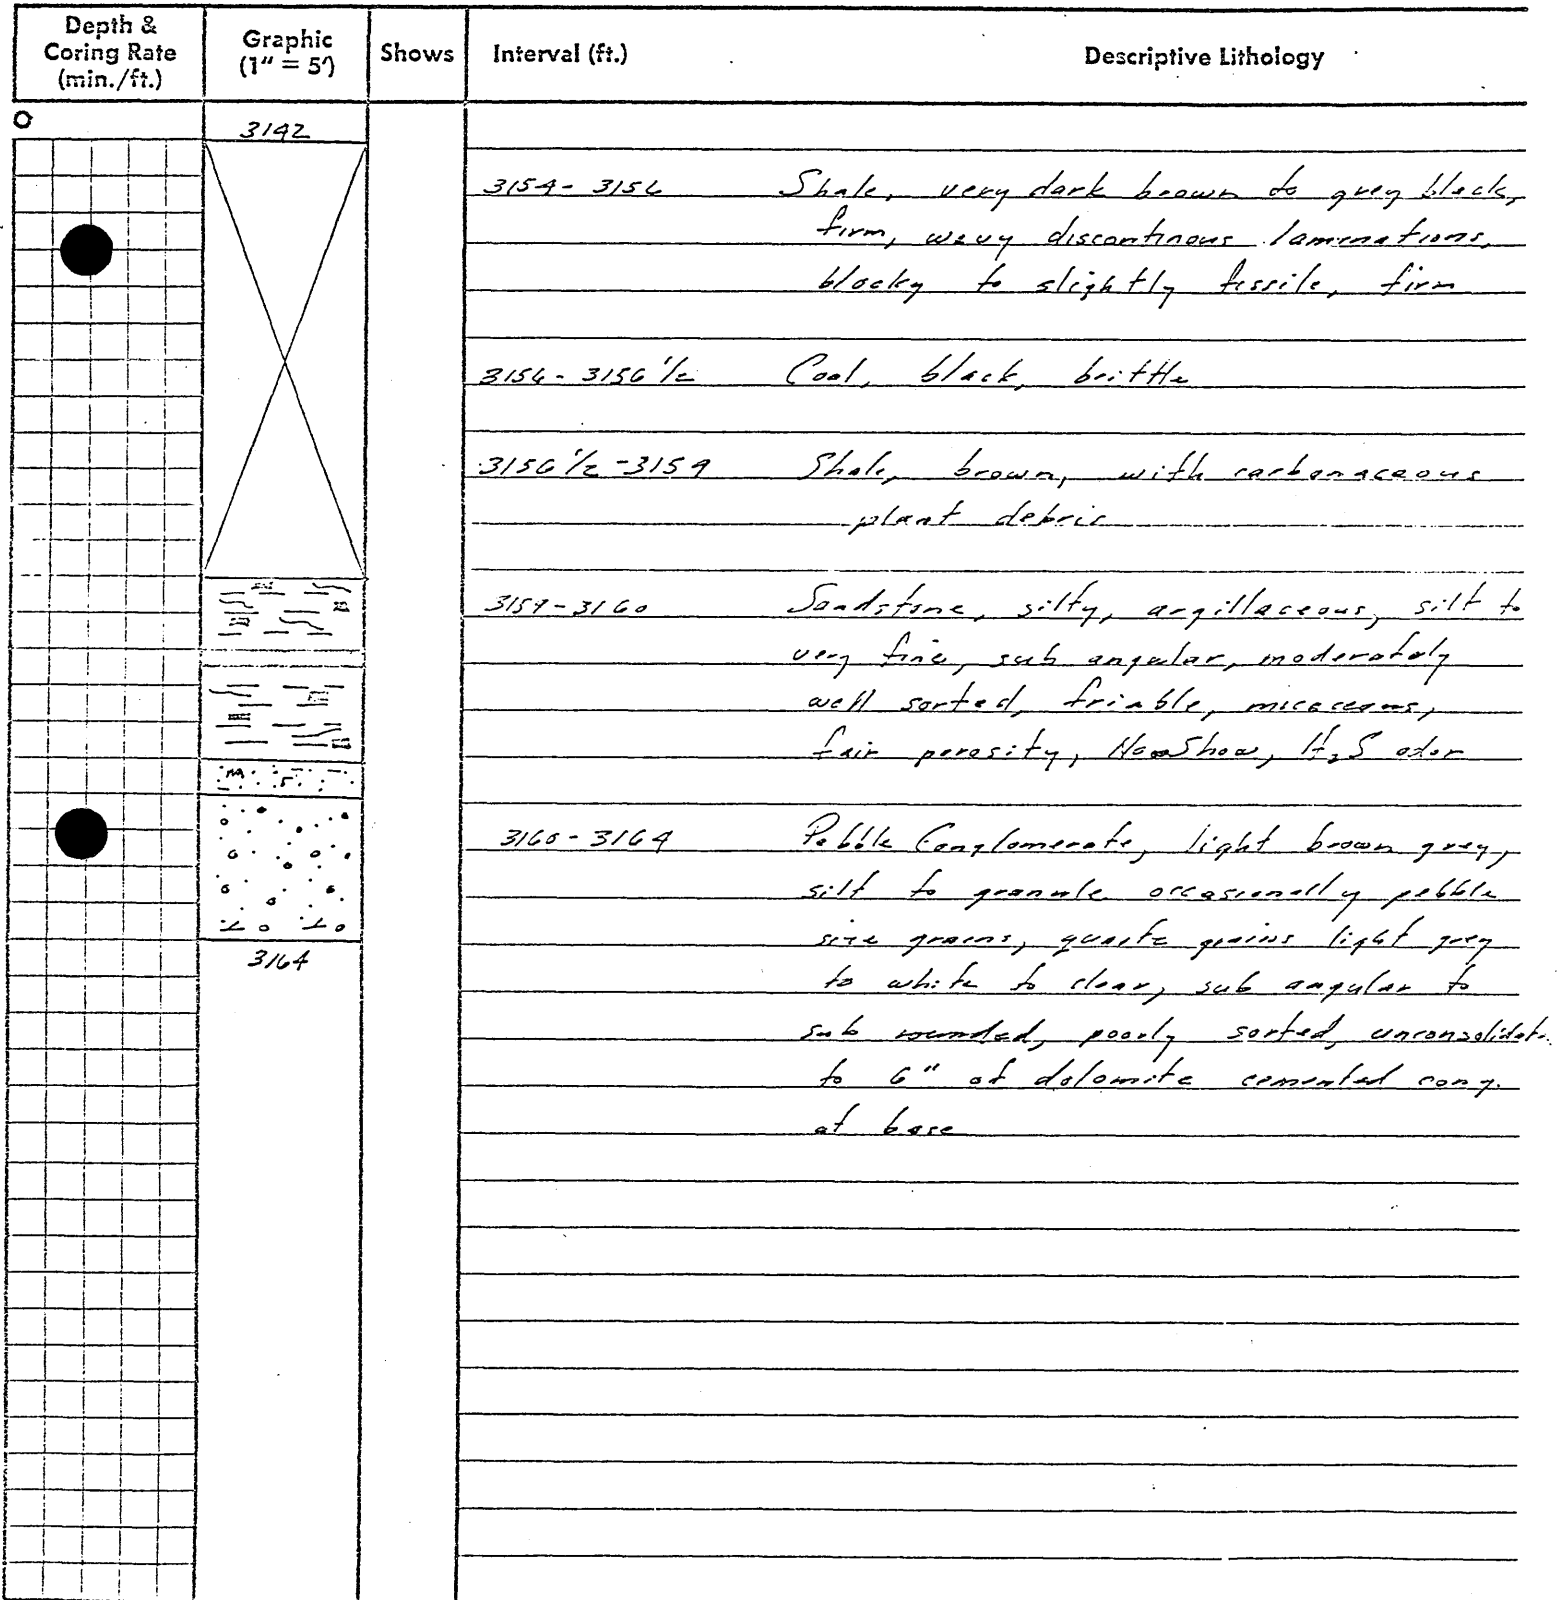 Depth &
Coring Rate
(min./ft.)
Graphic
(1" = 5')
Shows
Interval (ft.)
Descriptive Lithology
0
3142
3154 - 3156 Shale, very dark brown to grey black,
firm, wavy discontinous laminations,
blocky to slightly fissile, firm
3156 - 3156 1/2 Coal, black, brittle
3156 1/2 - 3159 Shale, brown, with carbonaceous
plant debris
3159 - 3160 Sandstone, silty, argillaceous, silt to
very fine, sub angular, moderately
well sorted, friable, micaceous,
fair porosity, No Show, H2S odor
3160 - 3164 Pebble Conglomerate, light brown grey,
silt to granule occasionally pebble
size grains, quartz grains light grey
to white to clear, sub angular to
sub rounded, poorly sorted, unconsolidat.
to 6" of dolomite cemented cong.
at base
3164